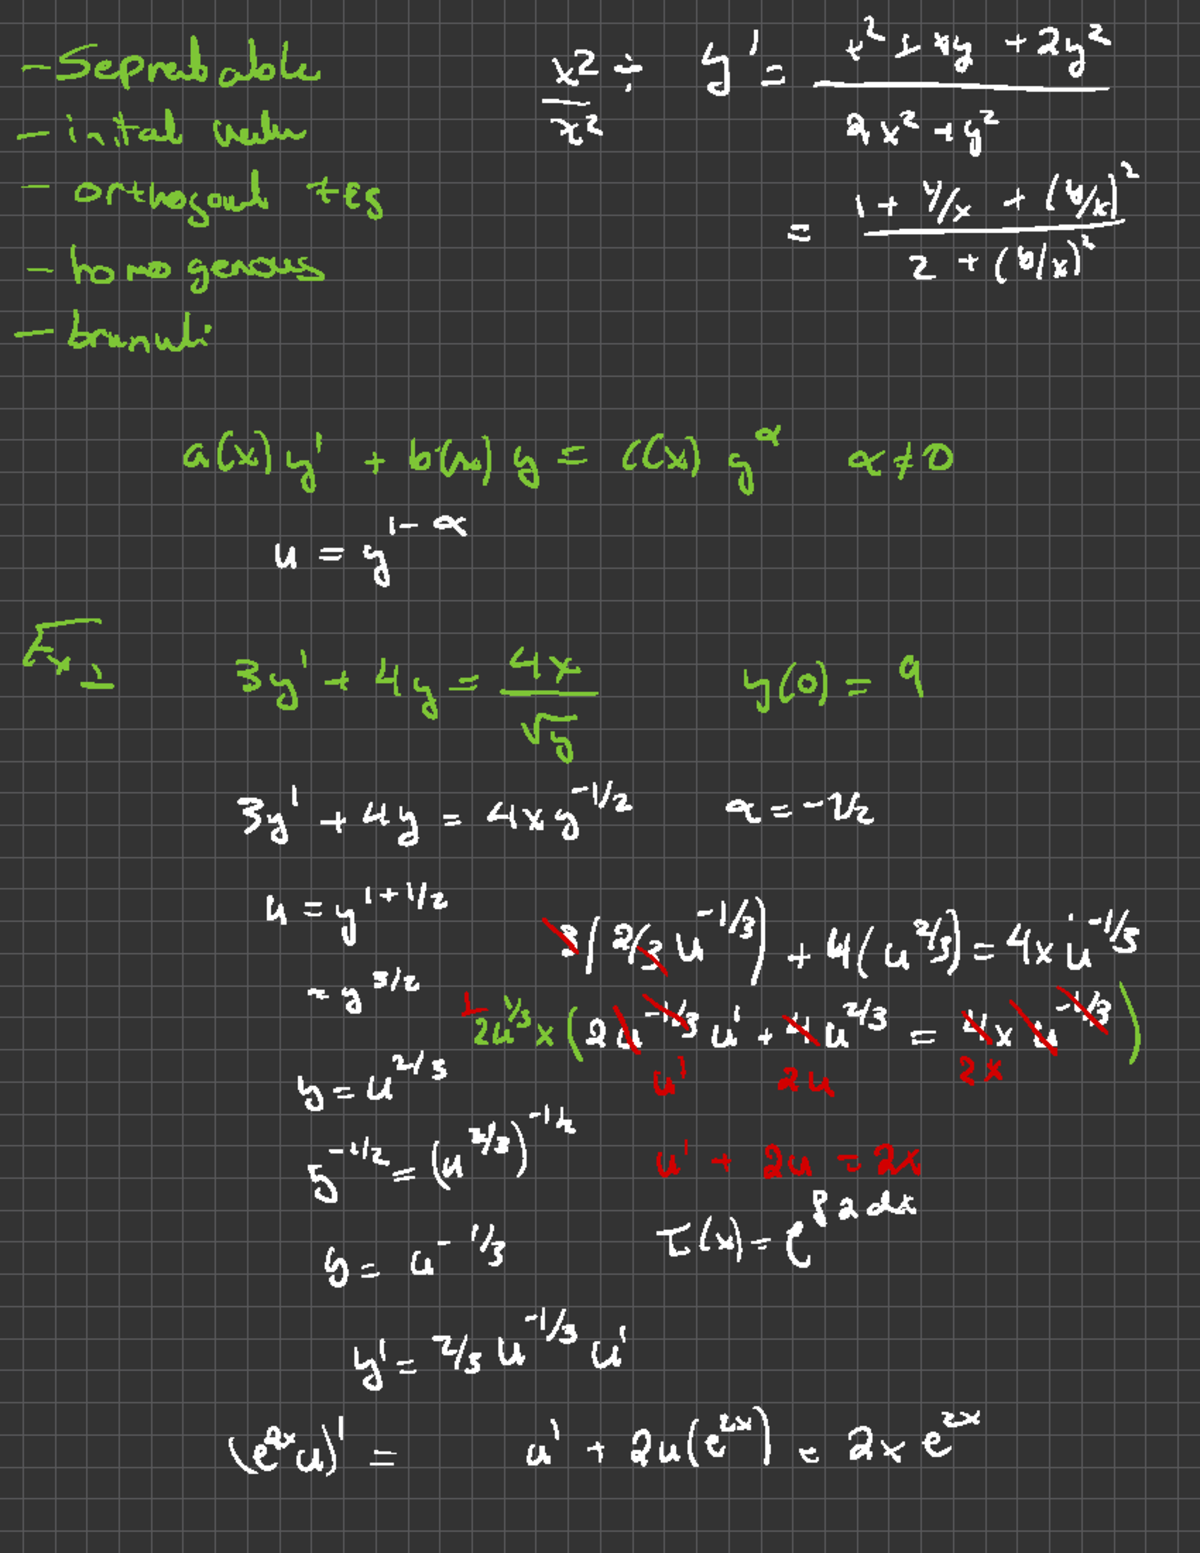 - Sepratable
- inital valu
- orthogonal
- homogenous
- brunuli
x2/x² ÷ y' = (x² + xy + 2y²)/(2x² + y²)
= (1 + y/x + (y/x)²)/(2 + (y/x)²)
a(x) y' + b(x) y = c(x) y^α   α ≠ 0
u = y^(1-α)
Ex 1   3y' + 4y = 4x/√y   y(0) = 9
3y' + 4y = 4xy^(-1/2)   α = -1/2
u = y^(1+1/2)
= y^(3/2)
3(2/3 u^(-1/3)) + 4(u^(2/3)) = 4x u^(-1/3)
1/2u^(1/3) x (2u^(-1/3) u' + 4u^(2/3) = 4x u^(-1/3))
u'   2u   2x
y = u^(2/3)
y^(-1/2) = (u^(2/3))^(-1/2)
u' + 2u = 2x
y = u^(-1/3)
I(x) = e^(∫2dx)
y' = 2/3 u^(-1/3) u'
(e^(2x) u)' =   u' + 2u(e^(2x)) = 2x e^(2x)